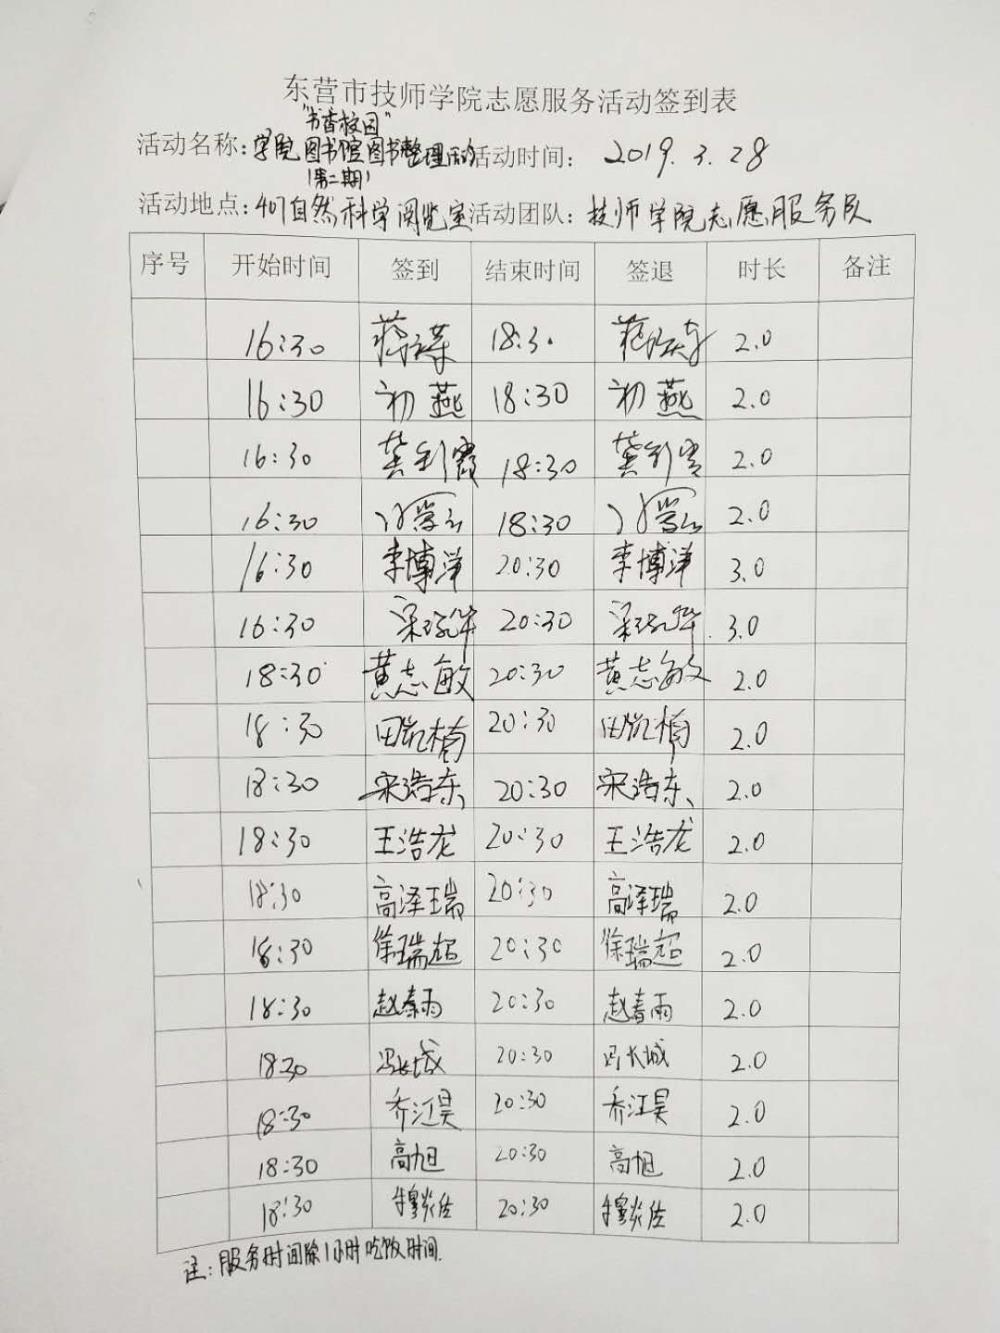 东营市技师学院志愿服务活动签到表
"书香校园"
活动名称:学院图书馆图书整理活动 活动时间: 2019.3.28
(第二期)
活动地点:401自然科学阅览室 活动团队:技师学院志愿服务队
序号 开始时间 签到 结束时间 签退 时长 备注
16:30 18:30 2.0
16:30 初燕 18:30 初燕 2.0
16:30 18:30 2.0
16:30 18:30 2.0
16:30 李博洋 20:30 李博洋 3.0
16:30 20:30 3.0
18:30 黄志敏 20:30 黄志敏 2.0
18:30 田凯楠 20:30 田凯楠 2.0
18:30 宋浩东 20:30 宋浩东 2.0
18:30 王浩龙 20:30 王浩龙 2.0
18:30 高泽瑞 20:30 高泽瑞 2.0
18:30 徐瑞超 20:30 徐瑞超 2.0
18:30 赵春雨 20:30 赵春雨 2.0
1830 冯长城 20:30 冯长城 2.0
18:30 乔江昊 20:30 乔江昊 2.0
18:30 高旭 20:30 高旭 2.0
18:30 20:30 2.0
注:服务时间除1小时吃饭时间.